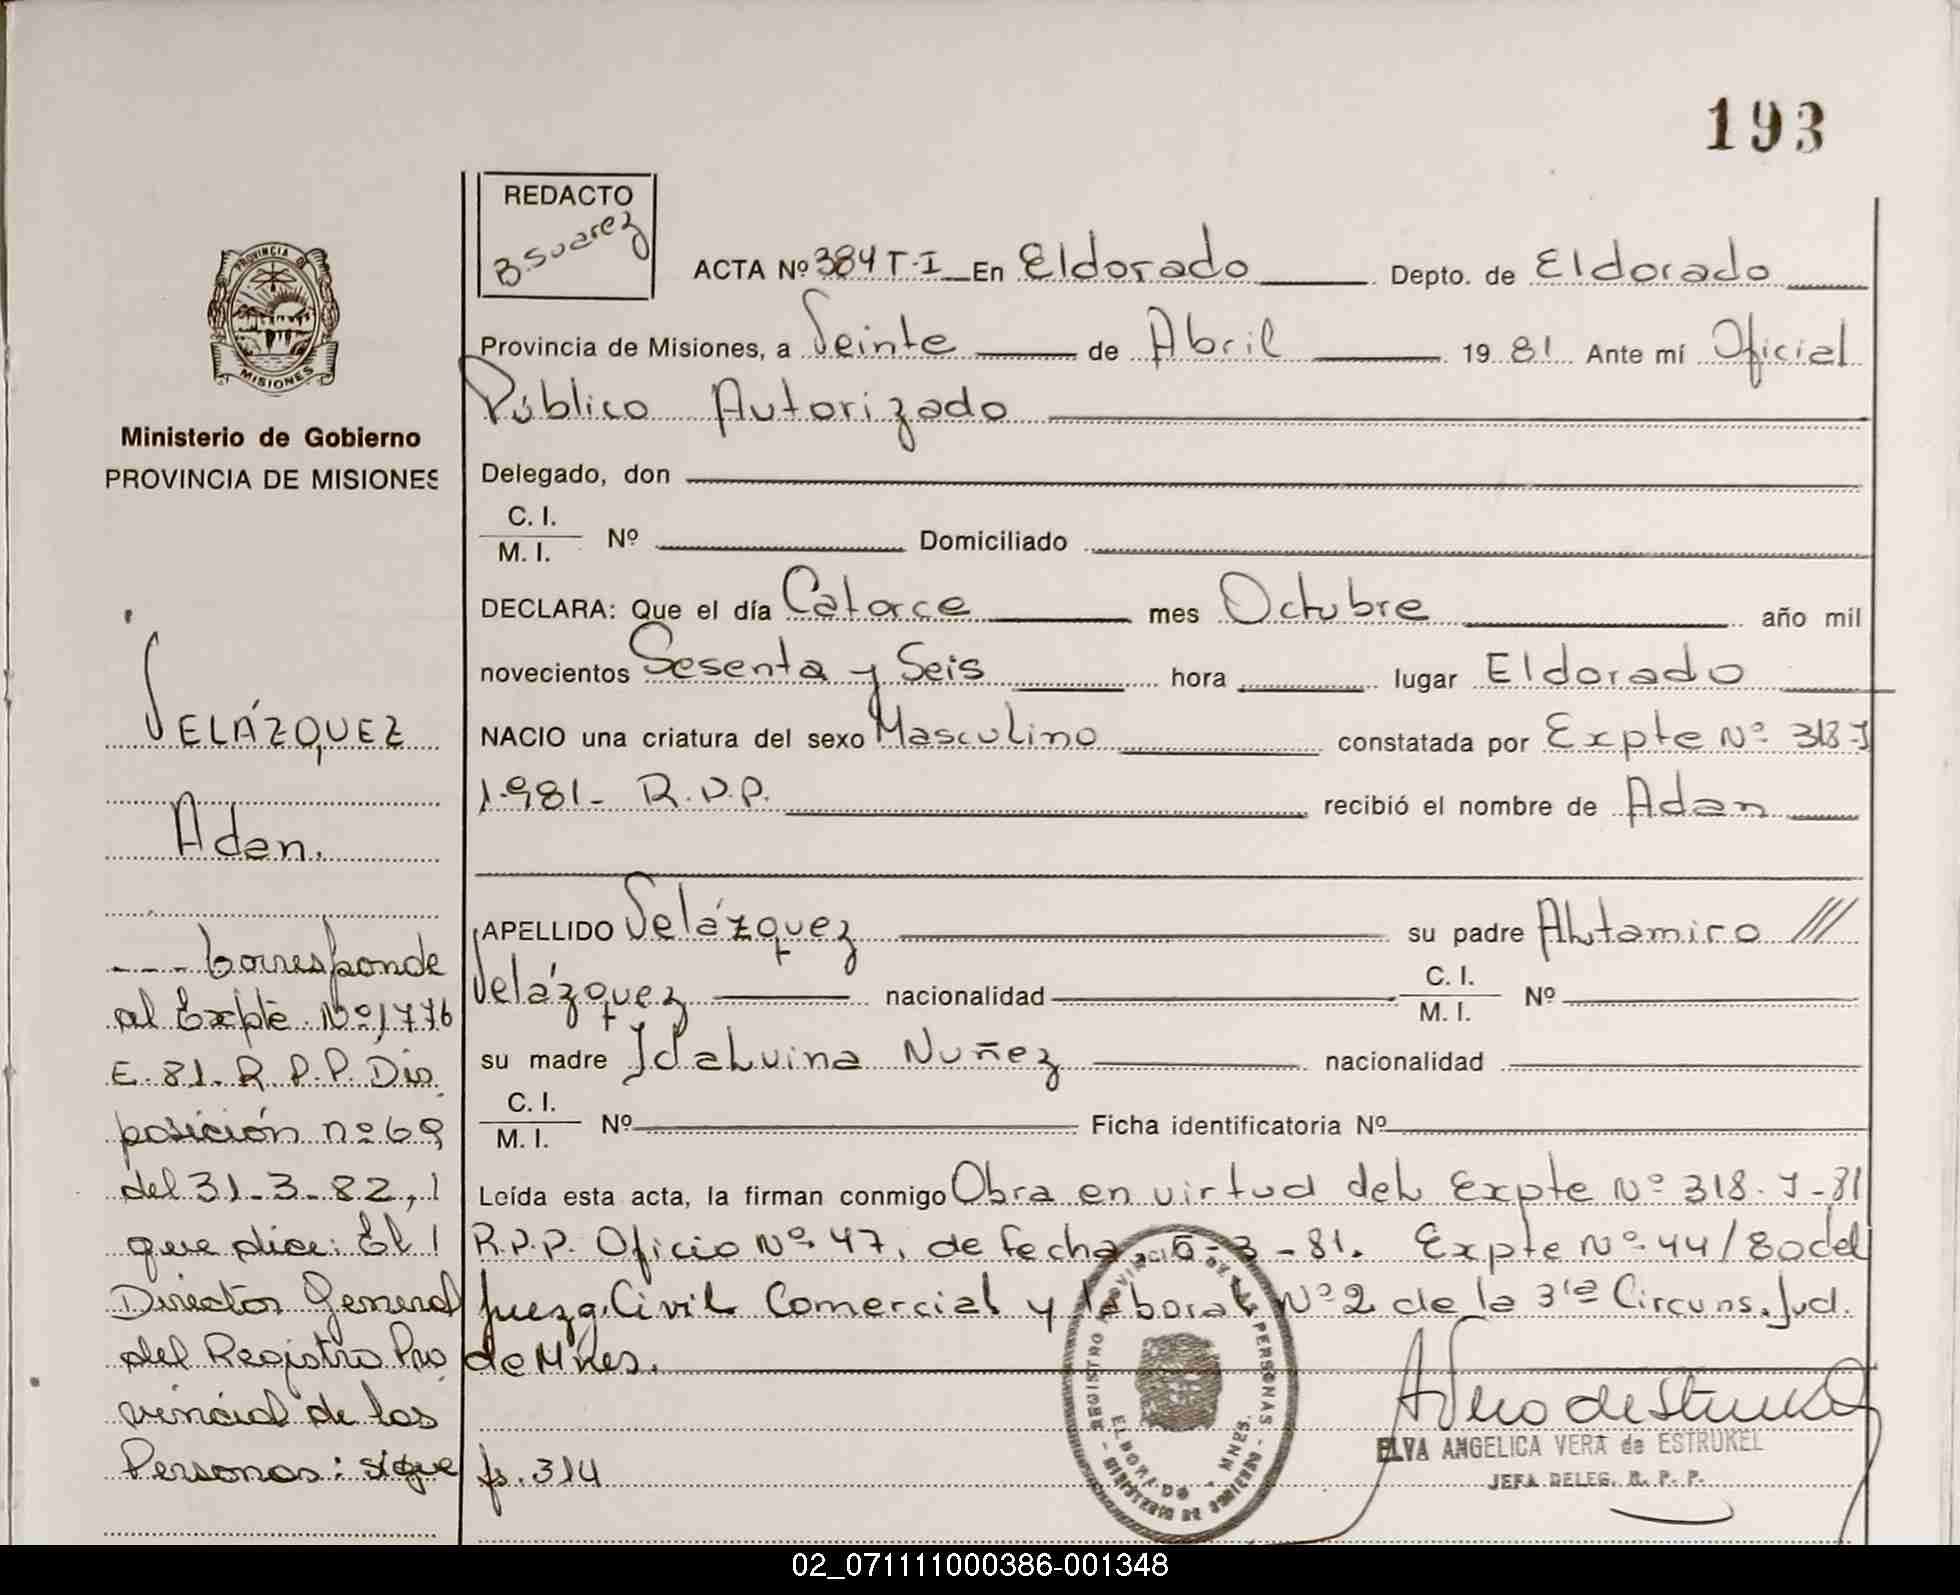 193
REDACTO
B. Suarez
PROVINCIA DE
MISIONES
Ministerio de Gobierno
PROVINCIA DE MISIONES
ACTA Nº 384 T-I En Eldorado Depto. de Eldorado
Provincia de Misiones, a Veinte de Abril 1981 Ante mí Oficial
Público Autorizado
Delegado, don
C. I.
M. I. Nº Domiciliado
DECLARA: Que el día Catorce mes Octubre año mil
novecientos Sesenta y Seis hora lugar Eldorado
NACIO una criatura del sexo Masculino constatada por Expte Nº 318-J
1.981- R.P.P. recibió el nombre de Adan
APELLIDO Velázquez su padre Altamiro ///
Velázquez nacionalidad C. I.
M. I. Nº
su madre Idaluina Nuñez nacionalidad
C. I.
M. I. Nº Ficha identificatoria Nº
Leída esta acta, la firman conmigo Obra en virtud del Expte Nº 318-J-81
R.P.P. Oficio Nº 47, de fecha 6-3-81. Expte Nº 44/80 del
Juezg. Civil Comercial y laboral Nº 2 de la 3ra Circuns. Jud.
de Mnes.
VELÁZQUEZ
Adan.
--- Corresponde
al Expte. Nº 1776
E-81. R.P.P. Dis
posición nº 69
del 31-3-82, l
que dice: El l
Director General
del Registro Pro
vincial de las
Personas: sigue fs. 314
REGISTRO PROVINCIAL DE LAS PERSONAS
ELDORADO - MNES.
MINISTERIO DE GOBIERNO
A Vera de Estrukel
ELVA ANGELICA VERA de ESTRUKEL
JEFA DELEG. R. P. P.
02_071111000386-001348